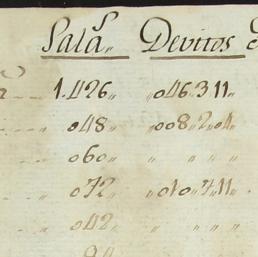 Salaˢ„ Devitos
1.426„ „046.311„
048„ „008.204„
060„ „ „ „
072„ „010.711„
042„ „ „ „